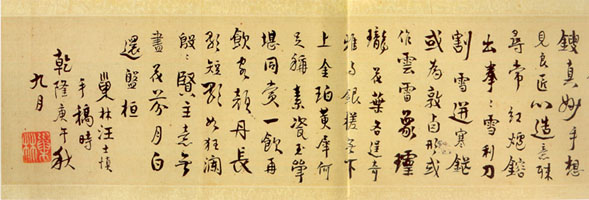 真妙手想
見良匠心造意殊
尋常紅爐鎔
出拳〻雪利刀
割雪迸寒鋩
或為敦卣形或
作雲雷象
瓏花葉各逞奇
銀槎下
上金珀黃犀何
足稱素瓷玉斝
堪同賞一飲再
飲顏丹長
歌短歌如狂瀾
殷〻賢主意無
盡花芬月白
還盤桓
巢林汪士慎
手稿時
乾隆庚午秋
九月